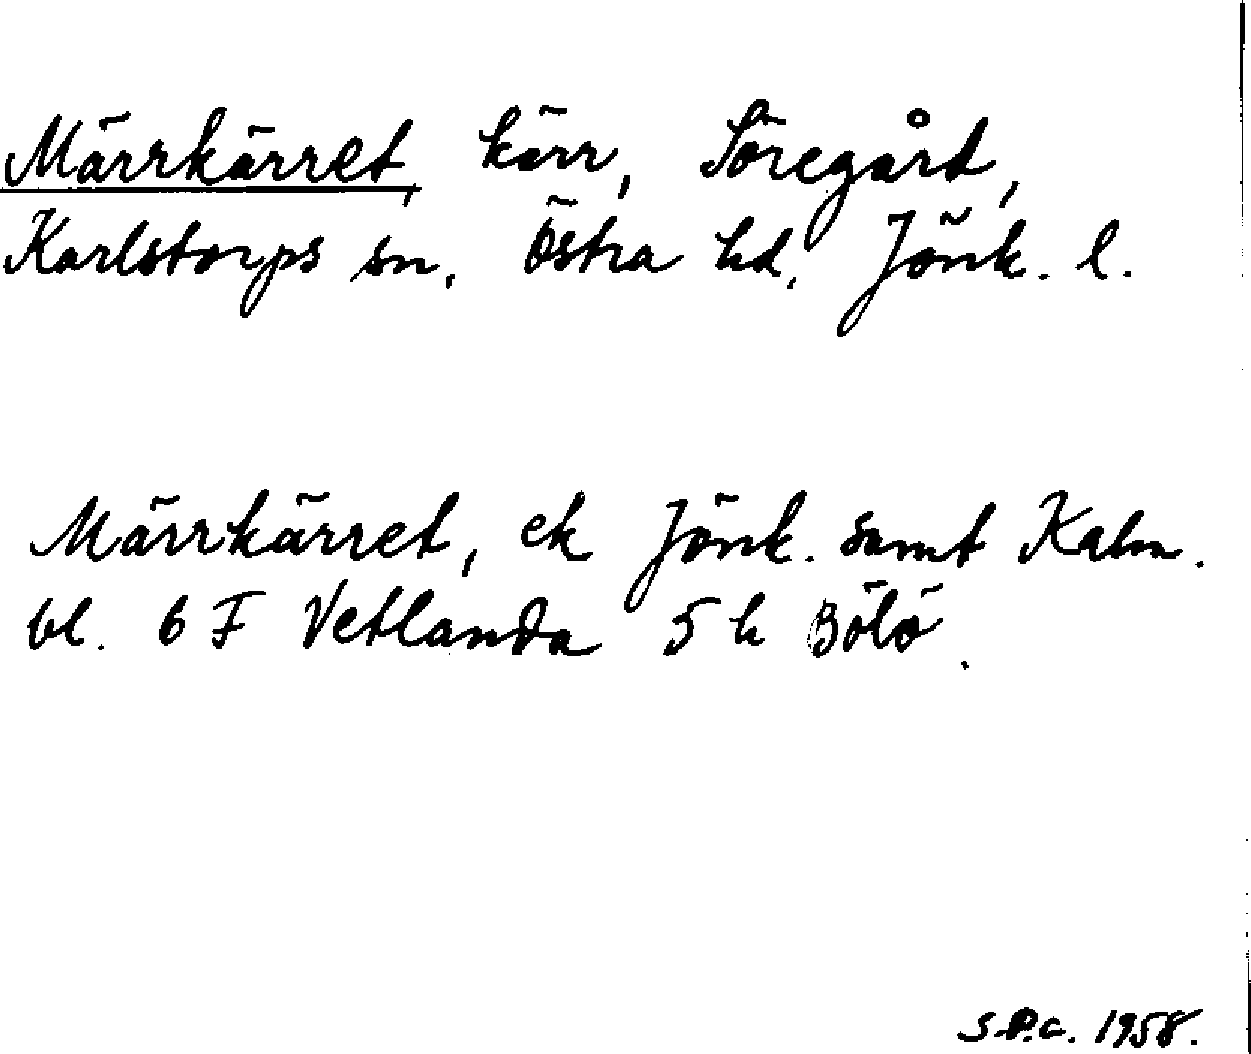 Märrkärret, kärr, Söregård,
Karlstorps sn, Östra hd, Jönk. l.
Märrkärret, ek Jönk. samt Kalm.
bl. 6 F Vetlanda 5 h Bölö.
S.P.C. 1958.